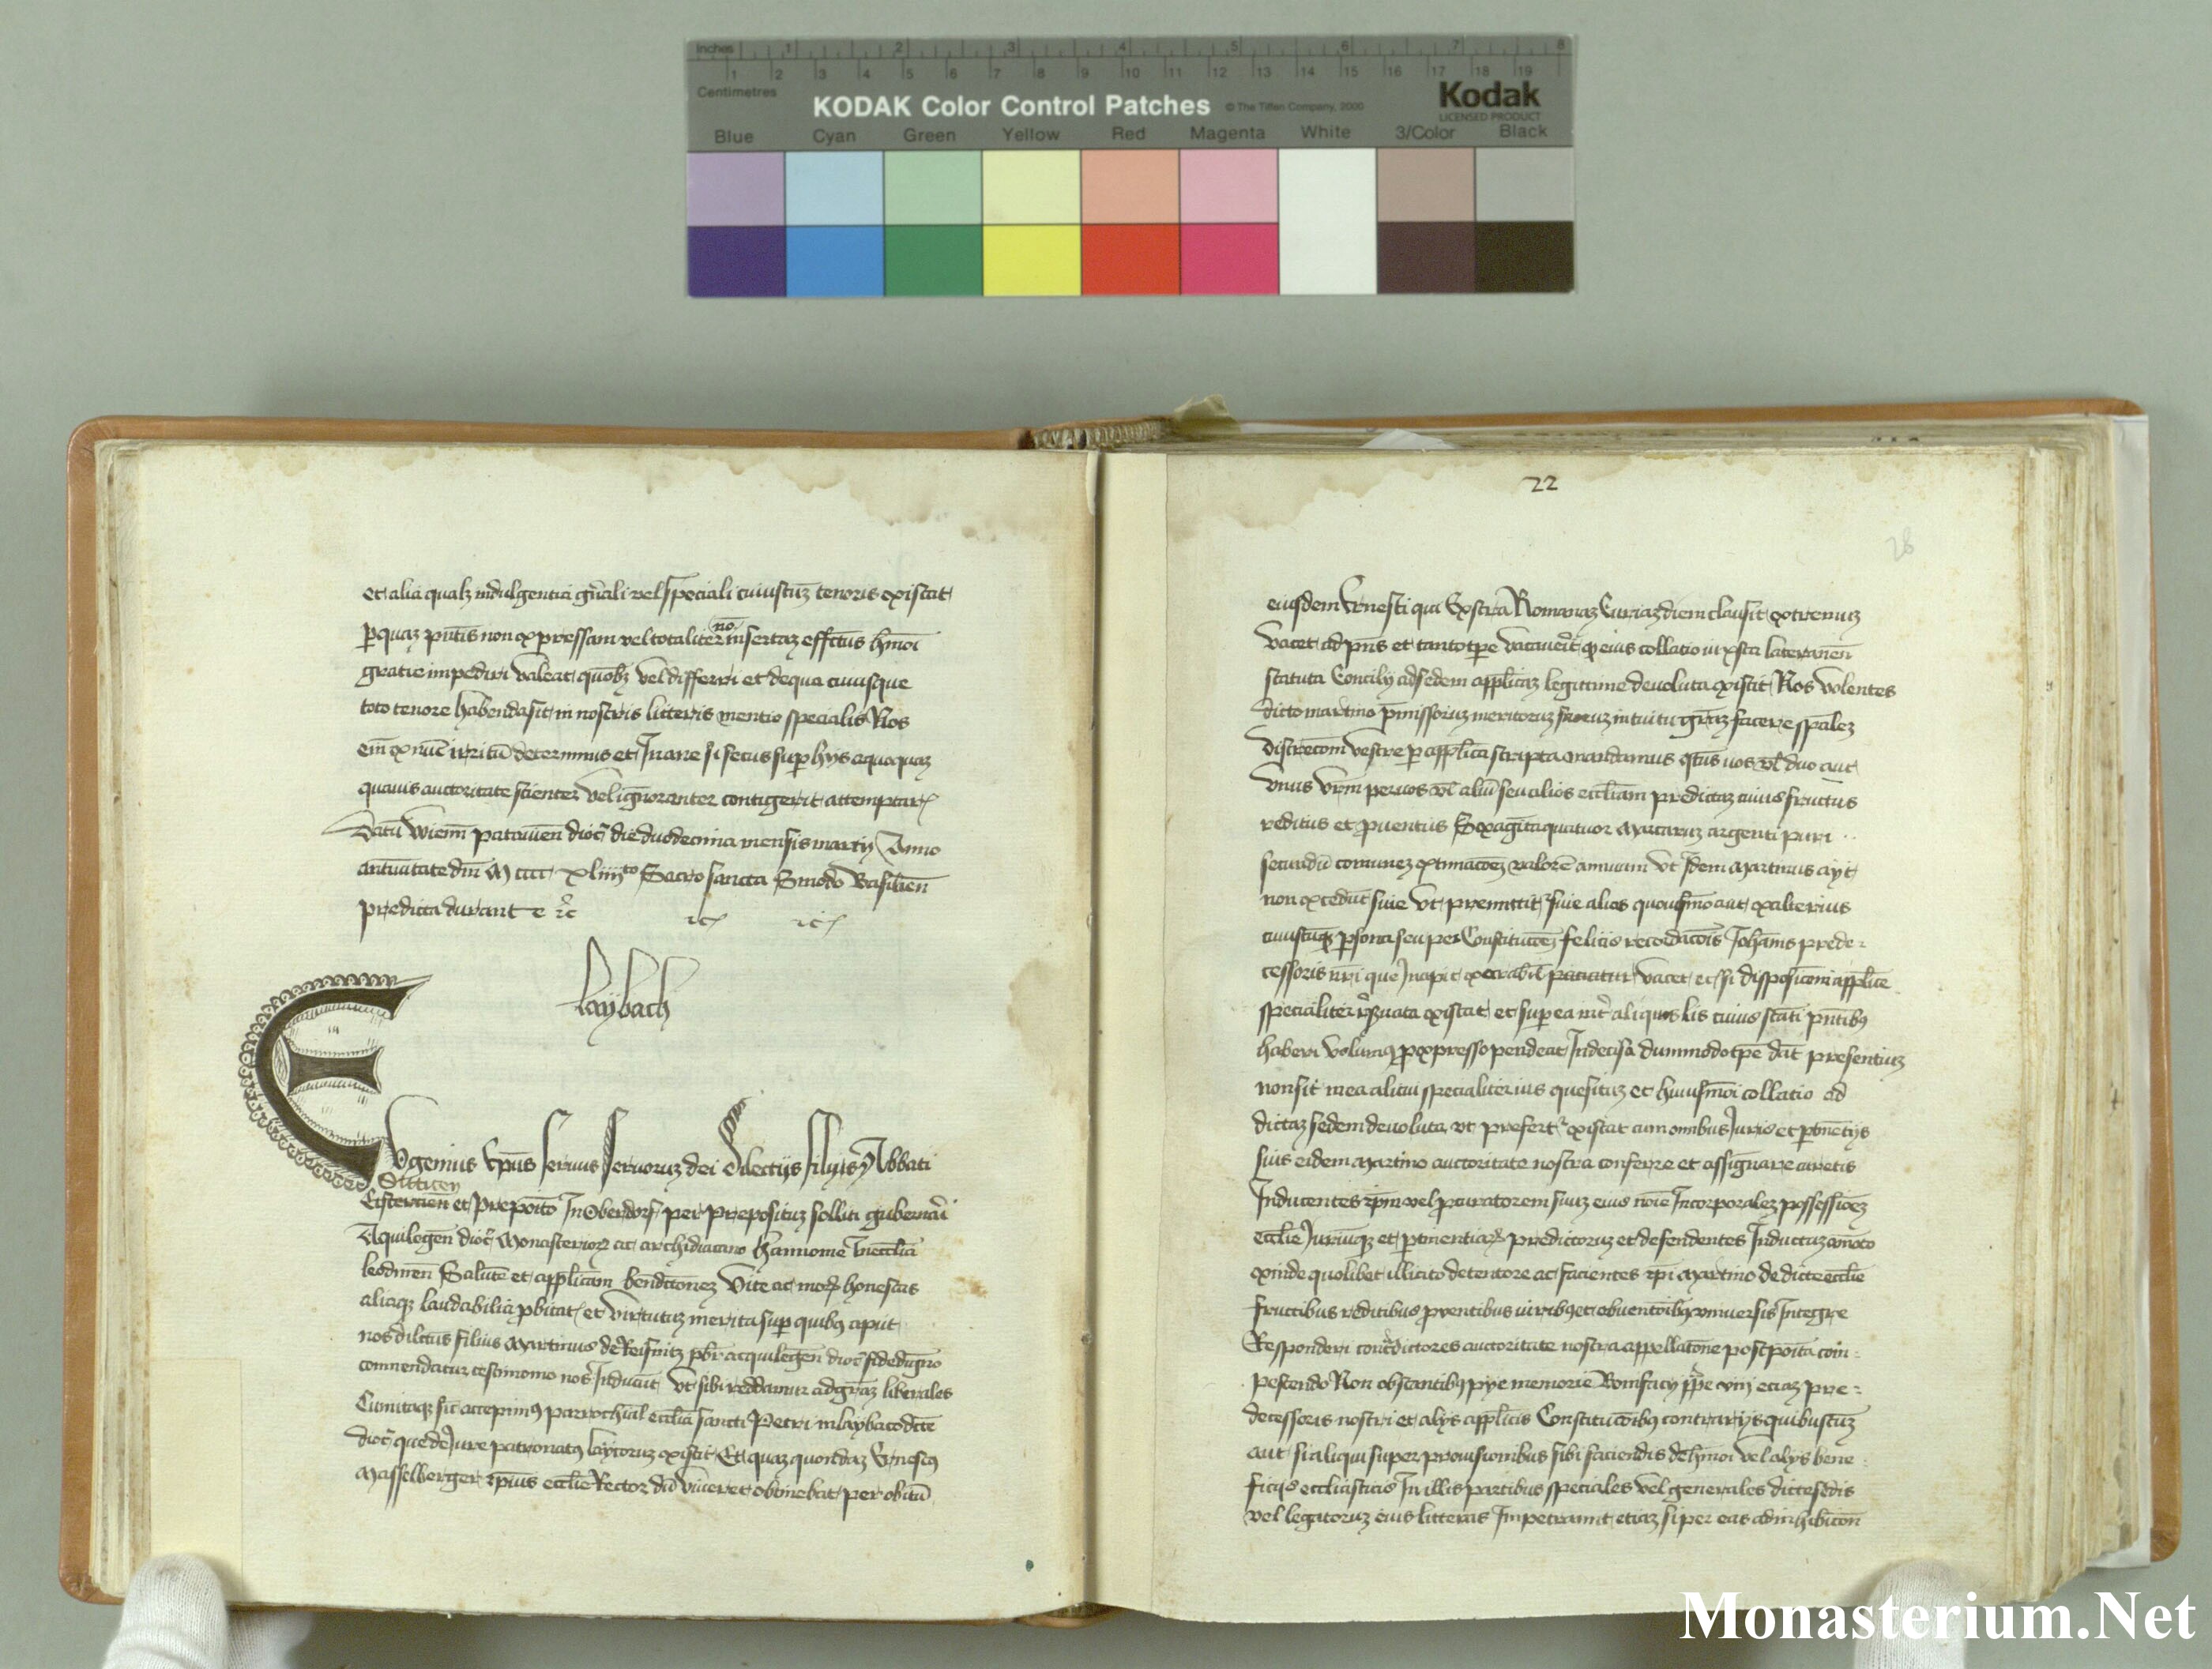 Inches 1 2 3 4 5 6 7 8
1 2 3 4 5 6 7 8 9 10 11 12 13 14 15 16 17 18 19
Centimetres
KODAK Color Control Patches © The Tiffen Company, 2000 Kodak
LICENSED PRODUCT
Blue Cyan Green Yellow Red Magenta White 3/Color Black
et alia qualz indulgentia gn̄ali vel speciali cuiuscūz tenoris existat
no
p quaz pn̄tis non expressam vel totaliter insertaz effectus hm̄oi
gratie impediri valeat quōlz vel differri et de qua cuiusque
toto tenore habenda sit in nostris litteris mentio specialis Nos
em̄ ex nūc irritū decernimus et Inane si secus sup hys a quoquaz
quauis auctoritate scienter vel ignoranter contigerit attemptari
Datū Wienn̄ patauien̄ dioc̄ die duodecima mensis marcii Anno
a natiuitate dn̄i M cccc xliiijto Sacro sancta Sinodo Basilien̄
predicta durante ꝛc̄ ꝛc̄ ꝛc̄
Laybach
Eugenius Ep̄us seruus seruoruz dei Dilectijs filijs Abbati
Sitticen̄
Cistercien̄ et Preposito In Oberdorf per prepositum soliti gubernari
Aquilegen̄ dioc̄ Monasterioꝝ ac archidiacano hannonie In eccl̄ia
leodien̄ Salutē et applicam bendictionez Vite ac moꝝ honestas
aliaqz laudabilia pbitat et virtutuz merita sup quibꝯ aput
nos dilectus filius Martinus de Reifnitz pbr̄ acquilegen̄ dioc̄ fidedigno
commendatur testimonio nos Inducūt vt sibi reddamur ad graz liberales
Cum itaqz sic̄ accepimꝯ parrochial eccl̄ia sancti Petri in laybaco dc̄te
dioc̄ que de Jure patronatꝯ laycoruz existit Et quaz quondaz Ernestꝯ
Masselberger ip̄ius eccl̄ie Rector dū viueret obtinebat per obitū
22
28
eiusdem Ernesti qui Exstra Romanaz Curiaz diem clausit extremuz
vacet ad pn̄s et tanto tp̄e vacauerit qꝫ eius collatio iuxta lateranen̄
statuta Concily ad sedem applicaz legitime deuoluta existit Nos volentes
dicto martino p̄missoruz meritoruz suoruz intuitu gr̄az facere spālez
discreconi vestre p applica scripta mandamus qtūs uos vl̄ duo aut
vnus vr̄m per uos vl̄ aliū seu alios eccliam predictaz cuius fructus
redditus et puentus Sexagita quatuor Marcaruz argenti puri
secundū comunez extimacōez valorē annuum vt Idem Martinus ayt
non excedūt siue vt premittit siue alias quouismō aut ex alterius
cuiuscuqz psona seu per Constitucōez felicis recordacōis Johānis prede
cessoris nr̄i que Incipit execrabil̄ patiatur vacet et si disposicōni applice
specialiter reseruata existat et sup ea int̄ aliquos lis cuius statū pn̄tibꝯ
haberi volumꝯ p expresso pendeat Indecisa dummodo tp̄e dat̄ presentiuz
non sit in ea alicui specialiter ius quesituz et huiusmōi collatio ad
dictaz sedem deuoluta vt prefertur existat cum omnibus Juribꝯ et ptinētijs
suis eidem Martino auctoritate nostra conferre et assignare curetis
Inducentes ip̄m vel pcuratorem suuz eius noīe In corporalez possessioez
ecclie Juriūqz et ptinentiaꝝ predictoruz et defendentes Inductuz amoto
exinde quolibet illicito detentore ac facientes ip̄i Martino de dicta ecclie
fructibus redditibus pventibus iuribꝯ et obuentōibꝯ vniuersis Integre
Responderi contradictores auctoritate nostra appellatione postpoīta com
pescendo Non obstantibꝯ pye memorie Bonifacy pp̄e viij eciaz pre
decessoris nostri et alys applicis Constitucōibꝯ contrarys quibuscūz
aut si aliqui super prouisionibus sibi faciendis de hm̄oi vel alys bene
ficijs ecclīasticis In illis partibus speciales vel generales dicte sedis
vel legatoruz eius litteras Impetrarint etiaz si per eas ad inhibicōn̄
Monasterium.Net